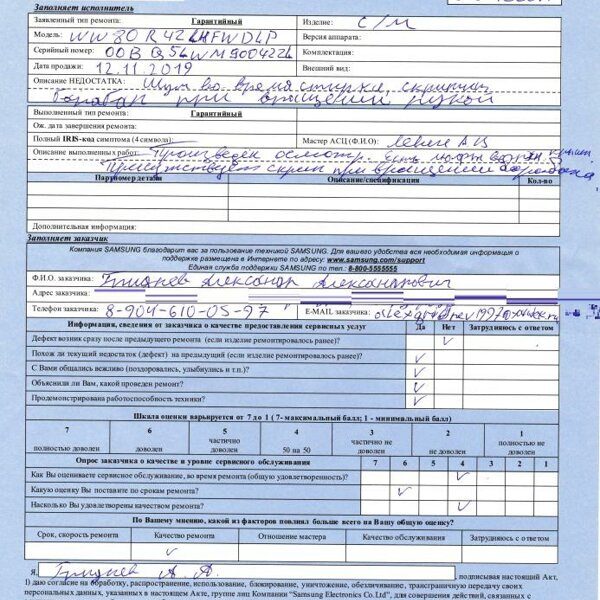 Заполняет исполнитель
Заявленный тип ремонта: Гарантийный Изделие: С/М
Модель: WW80R42LHFWDLP Версия аппарата:
Серийный номер: Комплектация:
Дата продажи: 12.11.2019 Внешний вид:
Описание НЕДОСТАТКА: Шум во время стирки, скрипит
барабан при вращении рукой
Выполненный тип ремонта: Гарантийный
Ож. дата завершения ремонта:
Полный IRIS-код симптома (4 символа): Мастер АСЦ (Ф.И.О):
Описание выполненных работ: Произведен осмотр. Есть люфт
скрип при вращении барабана
Партномер детали Описание/спецификация Кол-во
Дополнительная информация:
Заполняет заказчик
Компания SAMSUNG благодарит вас за пользование техникой SAMSUNG. Для вашего удобства вся необходимая информация о
поддержке размещена в Интернете по адресу: www.samsung.com/support
Единая служба поддержки SAMSUNG по тел.: 8-800-5555555
Ф.И.О. заказчика: Александр Александрович
Адрес заказчика:
Телефон заказчика: 8-904-610-05-97 E-MAIL заказчика:
Информация, сведения от заказчика о качестве предоставления сервисных услуг Да Нет Затрудняюсь с ответом
Дефект возник сразу после предыдущего ремонта (если изделие ремонтировалось ранее)?
Похож ли текущий недостаток (дефект) на предыдущий (если изделие ремонтировалось ранее)?
С Вами общались вежливо (поздоровались, улыбнулись и т.п.)?
Объяснили ли Вам, какой проведен ремонт?
Продемонстрирована работоспособность техники?
Шкала оценки варьируется от 7 до 1 ( 7- максимальный балл; 1 - минимальный балл)
7 6 5 4 3 2 1
полностью доволен доволен частично доволен 50 на 50 частично не доволен не доволен полностью не доволен
Опрос заказчика о качестве и уровне сервисного обслуживания 7 6 5 4 3 2 1
Как Вы оцениваете сервисное обслуживание, во время ремонта (общую удовлетворенность)?
Какую оценку Вы поставите по срокам ремонта?
Насколько Вы удовлетворены качеством ремонта?
По Вашему мнению, какой из факторов повлиял больше всего на Вашу общую оценку?
Срок, скорость ремонта Качество ремонта Отношение мастера Качество обслуживания Затрудняюсь с ответом
Я, А. А. , подписывая настоящий Акт,
1) даю согласие на обработку, распространение, использование, блокирование, уничтожение, обезличивание, трансграничную передачу своих
персональных данных, указанных в настоящем Акте, группе лиц Компании "Samsung Electronics Co.Ltd", для совершения действий, связанных с